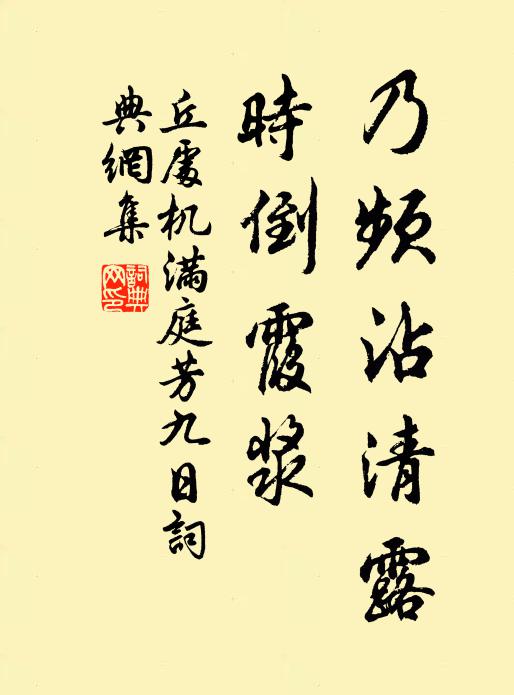 乃頻沾清露
時倒霞漿
丘處机滿庭芳九日詞
典網集
詞典
网印